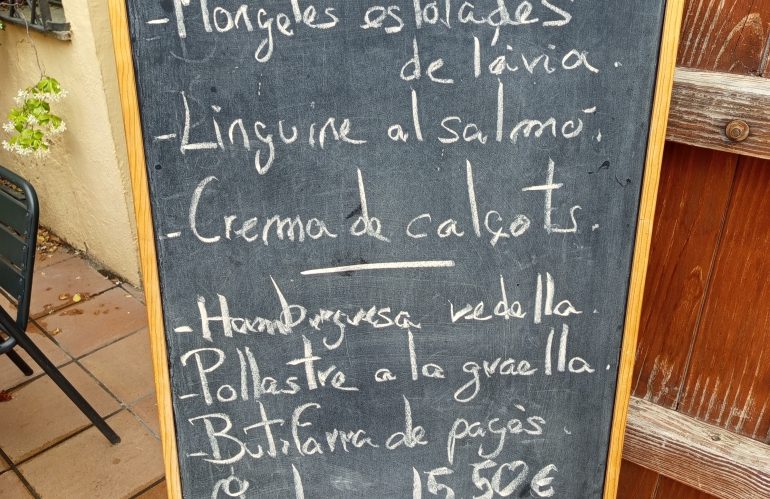 - Mongeles estofades
de l'àvia.
- Linguine al salmó.
- Crema de calçots.
- Hamburguesa vedella.
- Pollastre a la graella.
- Butifarra de pagès.
15,50€